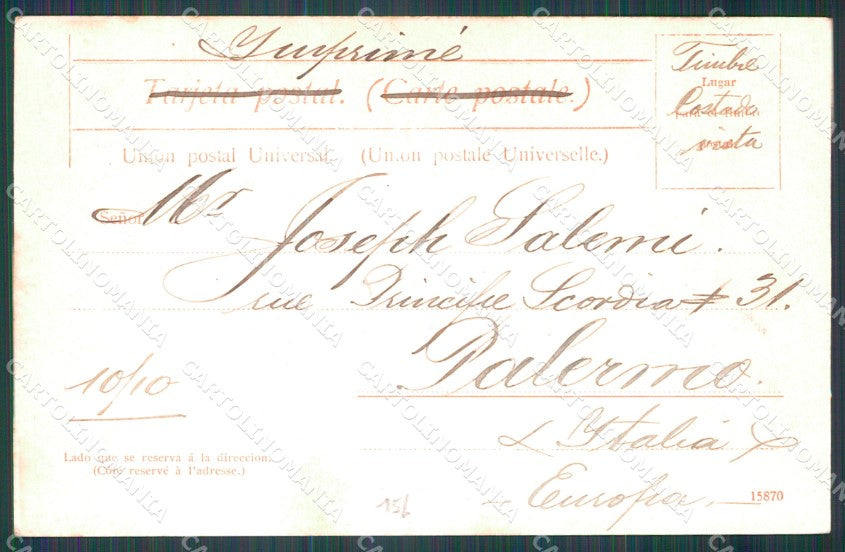 Imprimé
Tarjeta postal. (Carte postale.)
Union postal Universal. (Union postale Universelle.)
Timbre
Lugar
Costado
para el timbre
vista
Señor
Mr
Joseph Salemi.
rue Principe Scordia # 31.
Palermo.
Italia
Europa.
10/10
Lado que se reserva á la direccion.
(Coté reservé à l'adresse.)
15870
CARTOLINOMANIA